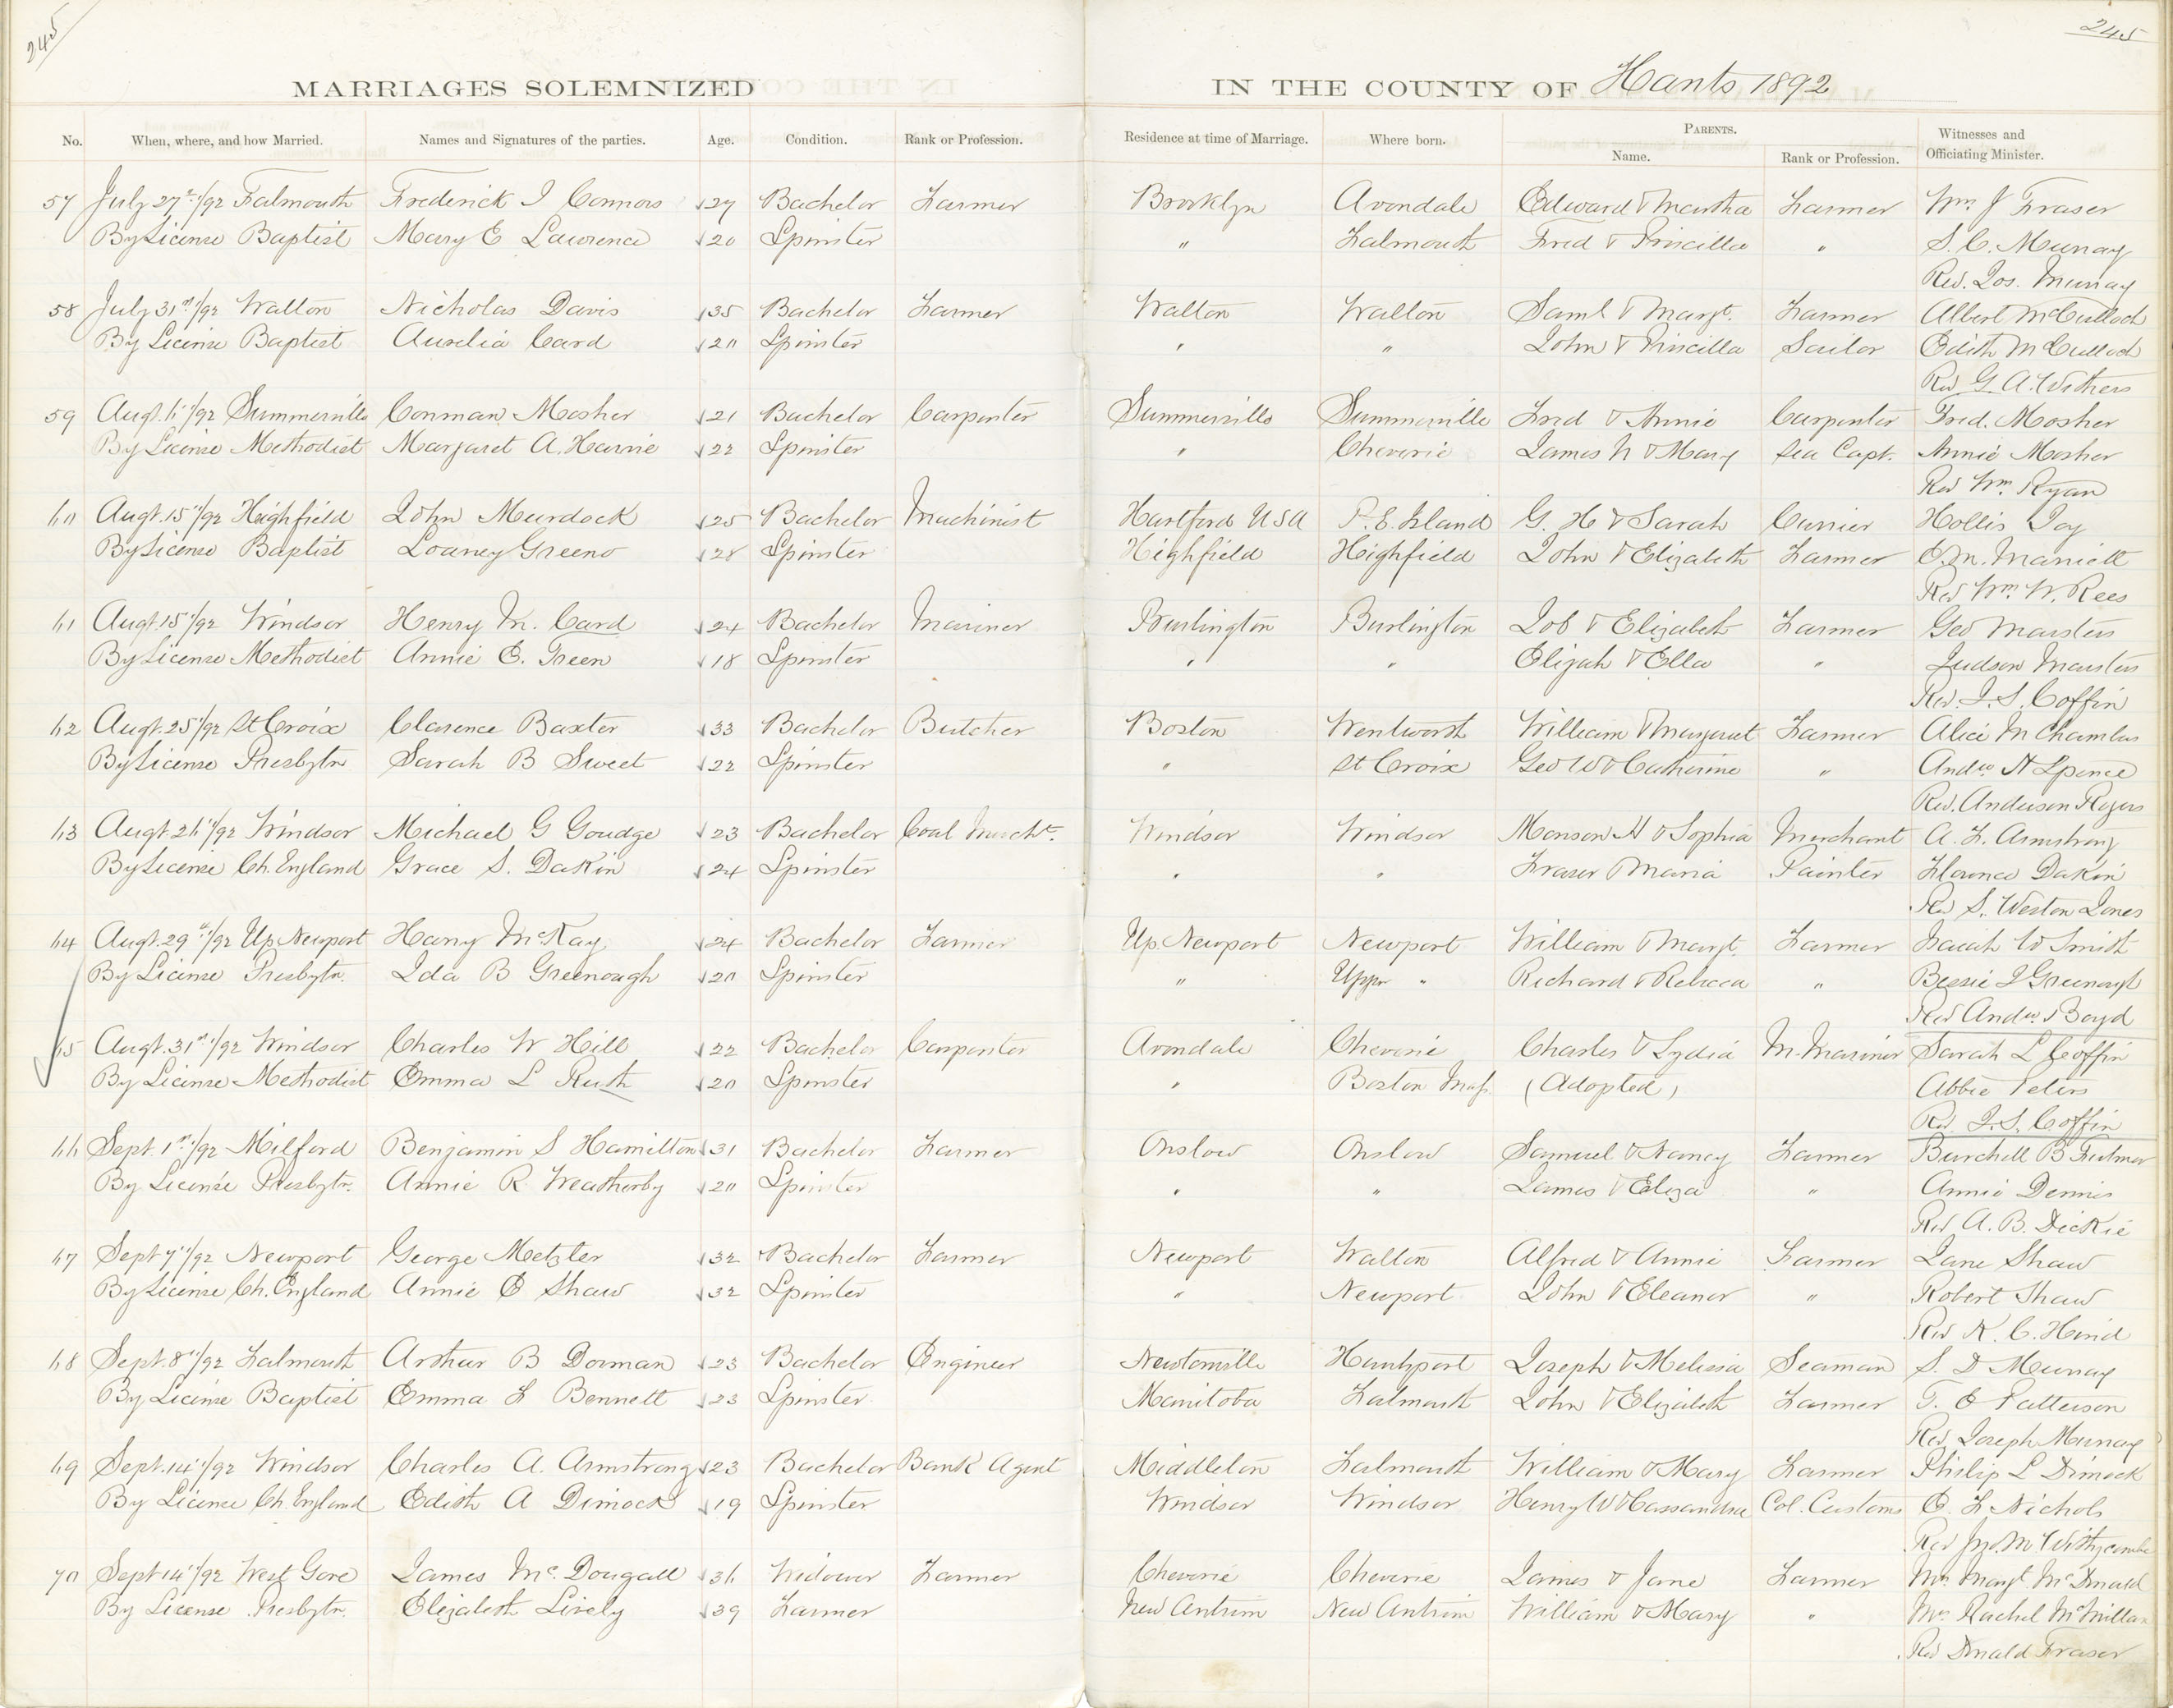 245
245
MARRIAGES SOLEMNIZED IN THE COUNTY OF Hants 1892
No. When, where, and how Married. Names and Signatures of the parties. Age. Condition. Rank or Profession. Residence at time of Marriage. Where born. PARENTS. Name. Rank or Profession. Witnesses and Officiating Minister.
57 July 27th/92 Falmouth Frederick I Connors 27 Bachelor Farmer Brooklyn Avondale Edward & Martha Farmer Wm J Fraser
By License Baptist Mary E Lawrence 20 Spinster " Falmouth Fred & Priscilla " S. C. Murray
Rev. Jos. Murray
58 July 31st/92 Walton Nicholas Davis 35 Bachelor Farmer Walton Walton Saml & Margt. Farmer Albert McCulloch
By License Baptist Aurelia Card 20 Spinster " " John & Priscilla Sailor Edith McCulloch
Rev G. A. Withers
59 Augt. 6"/92 Summerville Conman Mosher 21 Bachelor Carpenter Summerville Summerville Fred & Annie Carpenter Fred. Mosher
By License Methodist Margaret A. Harvie 22 Spinster " Cheverie James N & Mary Sea Capt. Annie Mosher
Rev Wm. Ryan
60 Augt. 15"/92 Highfield John Murdock 25 Bachelor Machinist Hartford USA P. E. Island G. H & Sarah Currier Hollis Joy
By License Baptist Loaney Greeno 28 Spinster Highfield Highfield John & Elizabeth Farmer E. M. Mariett
Rev Wm. W. Rees
61 Augt. 15"/92 Windsor Henry M. Card 24 Bachelor Mariner Burlington Burlington Job & Elizabeth Farmer Geo Marsters
By License Methodist Annie E. Green 18 Spinster " " Elijah & Ella " Judson Marsters
Rev. J. S. Coffin
62 Augt. 25"/92 St Croix Clarence Baxter 33 Bachelor Butcher Boston Wentworth William & Margaret Farmer Alice M Chambers
By License Presbytn Sarah B Sweet 22 Spinster " St Croix Geo W & Catherine " Andw N Spence
Rev. Anderson Rogers
63 Augt 26"/92 Windsor Michael G Goudge 23 Bachelor Coal Mercht. Windsor Windsor Monson H & Sophia Merchant A. F. Armstrong
By License Ch. England Grace S. Dakin 24 Spinster " " Fraser & Maria Painter Florence Dakin
Rev S. Weston Jones
64 Augt. 29th/92 Up Newport Harry McKay 24 Bachelor Farmer Up. Newport Newport William & Margt. Farmer Isaiah W Smith
By License Presbytn. Ida B Greenough 20 Spinster " Upper " Richard & Rebecca " Bessie I Greenough
Rev Andw Boyd
65 Augt. 31st/92 Windsor Charles W Hill 22 Bachelor Carpenter Avondale Cheverie Charles & Lydia M. Mariner Sarah L Coffin
By License Methodist Emma L Ruth 20 Spinster " Boston Mass (Adopted) Abbie Peters
Rev. J. S. Coffin
66 Sept. 1st/92 Milford Benjamin S Hamilton 31 Bachelor Farmer Onslow Onslow Samuel & Nancy Farmer Burchell B Fulmer
By License Presbytn. Annie R Weatherby 20 Spinster " " James & Eliza " Annie Dennis
Rev A. B. Dickie
67 Sept 7"/92 Newport George Metzler 32 Bachelor Farmer Newport Walton Alfred & Annie Farmer Jane Shaw
By License Ch. England Annie E Shaw 32 Spinster " Newport John & Eleanor " Robert Shaw
Rev K. C. Hind
68 Sept. 8"/92 Falmouth Arthur B Dorman 23 Bachelor Engineer Newtonville Hantsport Joseph & Melissa Seaman S. D Murray
By License Baptist Emma F Bennett 23 Spinster Manitoba Falmouth John & Elizabeth Farmer T. E Patterson
Rev Joseph Murray
69 Sept. 14"/92 Windsor Charles A. Armstrong 23 Bachelor Bank Agent Middleton Falmouth William & Mary Farmer Philip L Dimock
By Licence Ch. England Edith A Dimock 19 Spinster Windsor Windsor Henry W & Cassandra Col. Customs E. F Nichols
Rev Jno. M. Withycombe
70 Sept 14"/92 West Gore James Mc.Dougall 36 Widower Farmer Cheverie Cheverie James & Jane Farmer Mrs Margt. McDonald
By License Presbytn. Elizabeth Lively 39 Farmer New Antrim New Antrim William & Mary " Mrs Rachel McMillan
Rev Donald Fraser